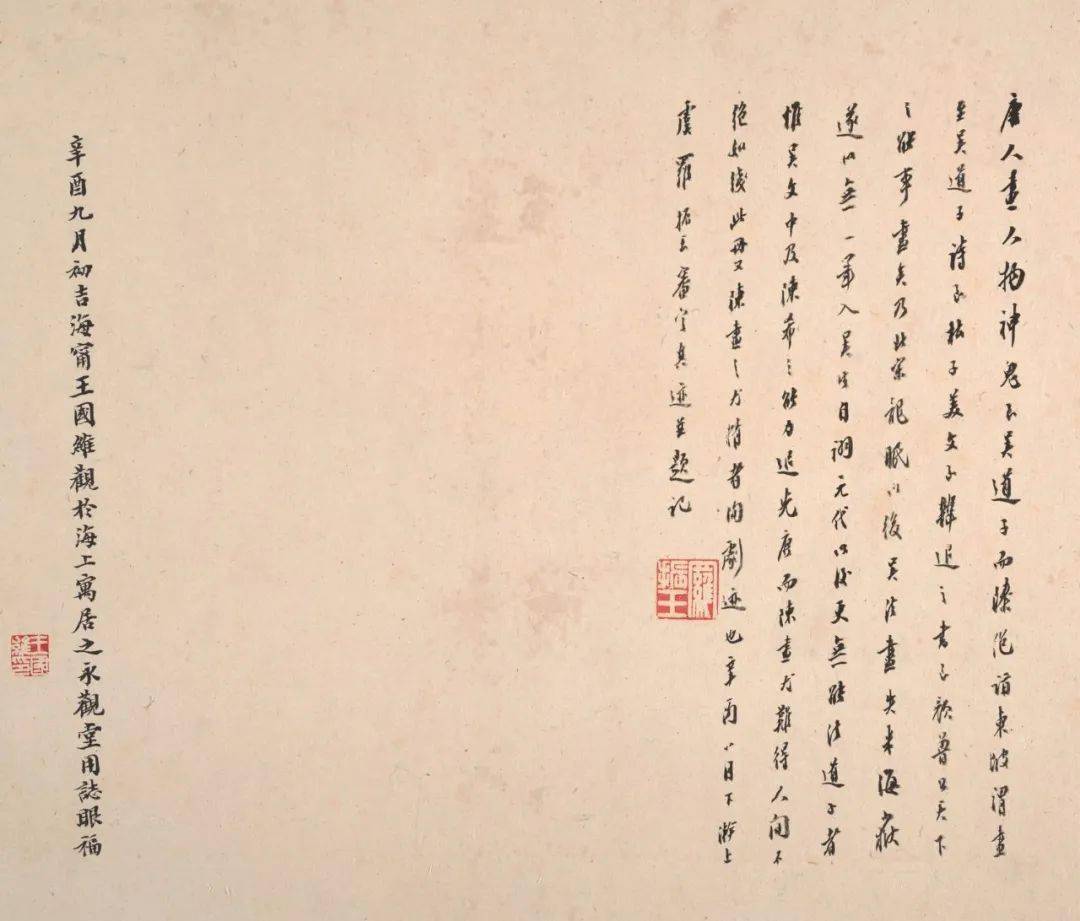 唐人畫人物神鬼至吳道子而臻絕詣東坡謂畫
至吳道子詩至杜子美文至韓退之書至顏魯公天下
之能事盡矣乃北宋龍眠以後吳法盡失米海嶽
遂以無一筆入吳生自詡元代以後更無能法道子者
惟吳文中及陳希之能力追先唐而陳畫尤難得人間不
絕如綫此冊又陳畫之尤精者間劇迹也辛酉八月下澣上
虞羅振玉審定真迹並題記
羅振玉
辛酉九月初吉海甯王國維觀於海上寓居之永觀堂用誌眼福
王國維印